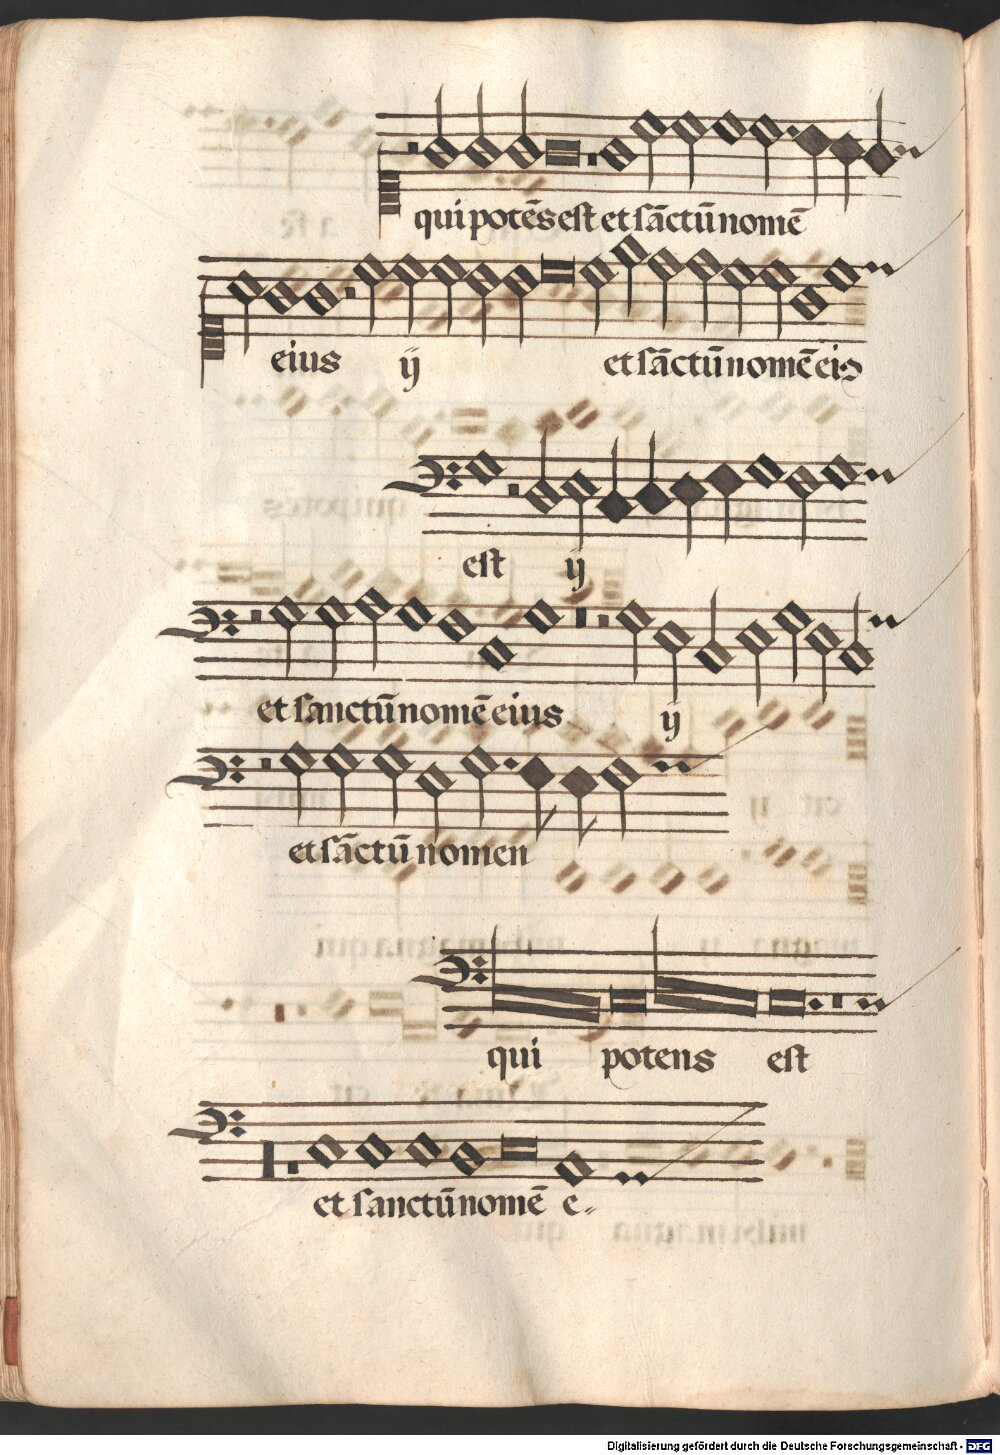 qui potēs est et sāctū nomē
eius ij et sāctū nomē eiꝰ
est ij
et sanctū nomē eius ij
et sāctū nomen
qui potens est
et sanctū nomē e-
Digitalisierung gefördert durch die Deutsche Forschungsgemeinschaft - DFG